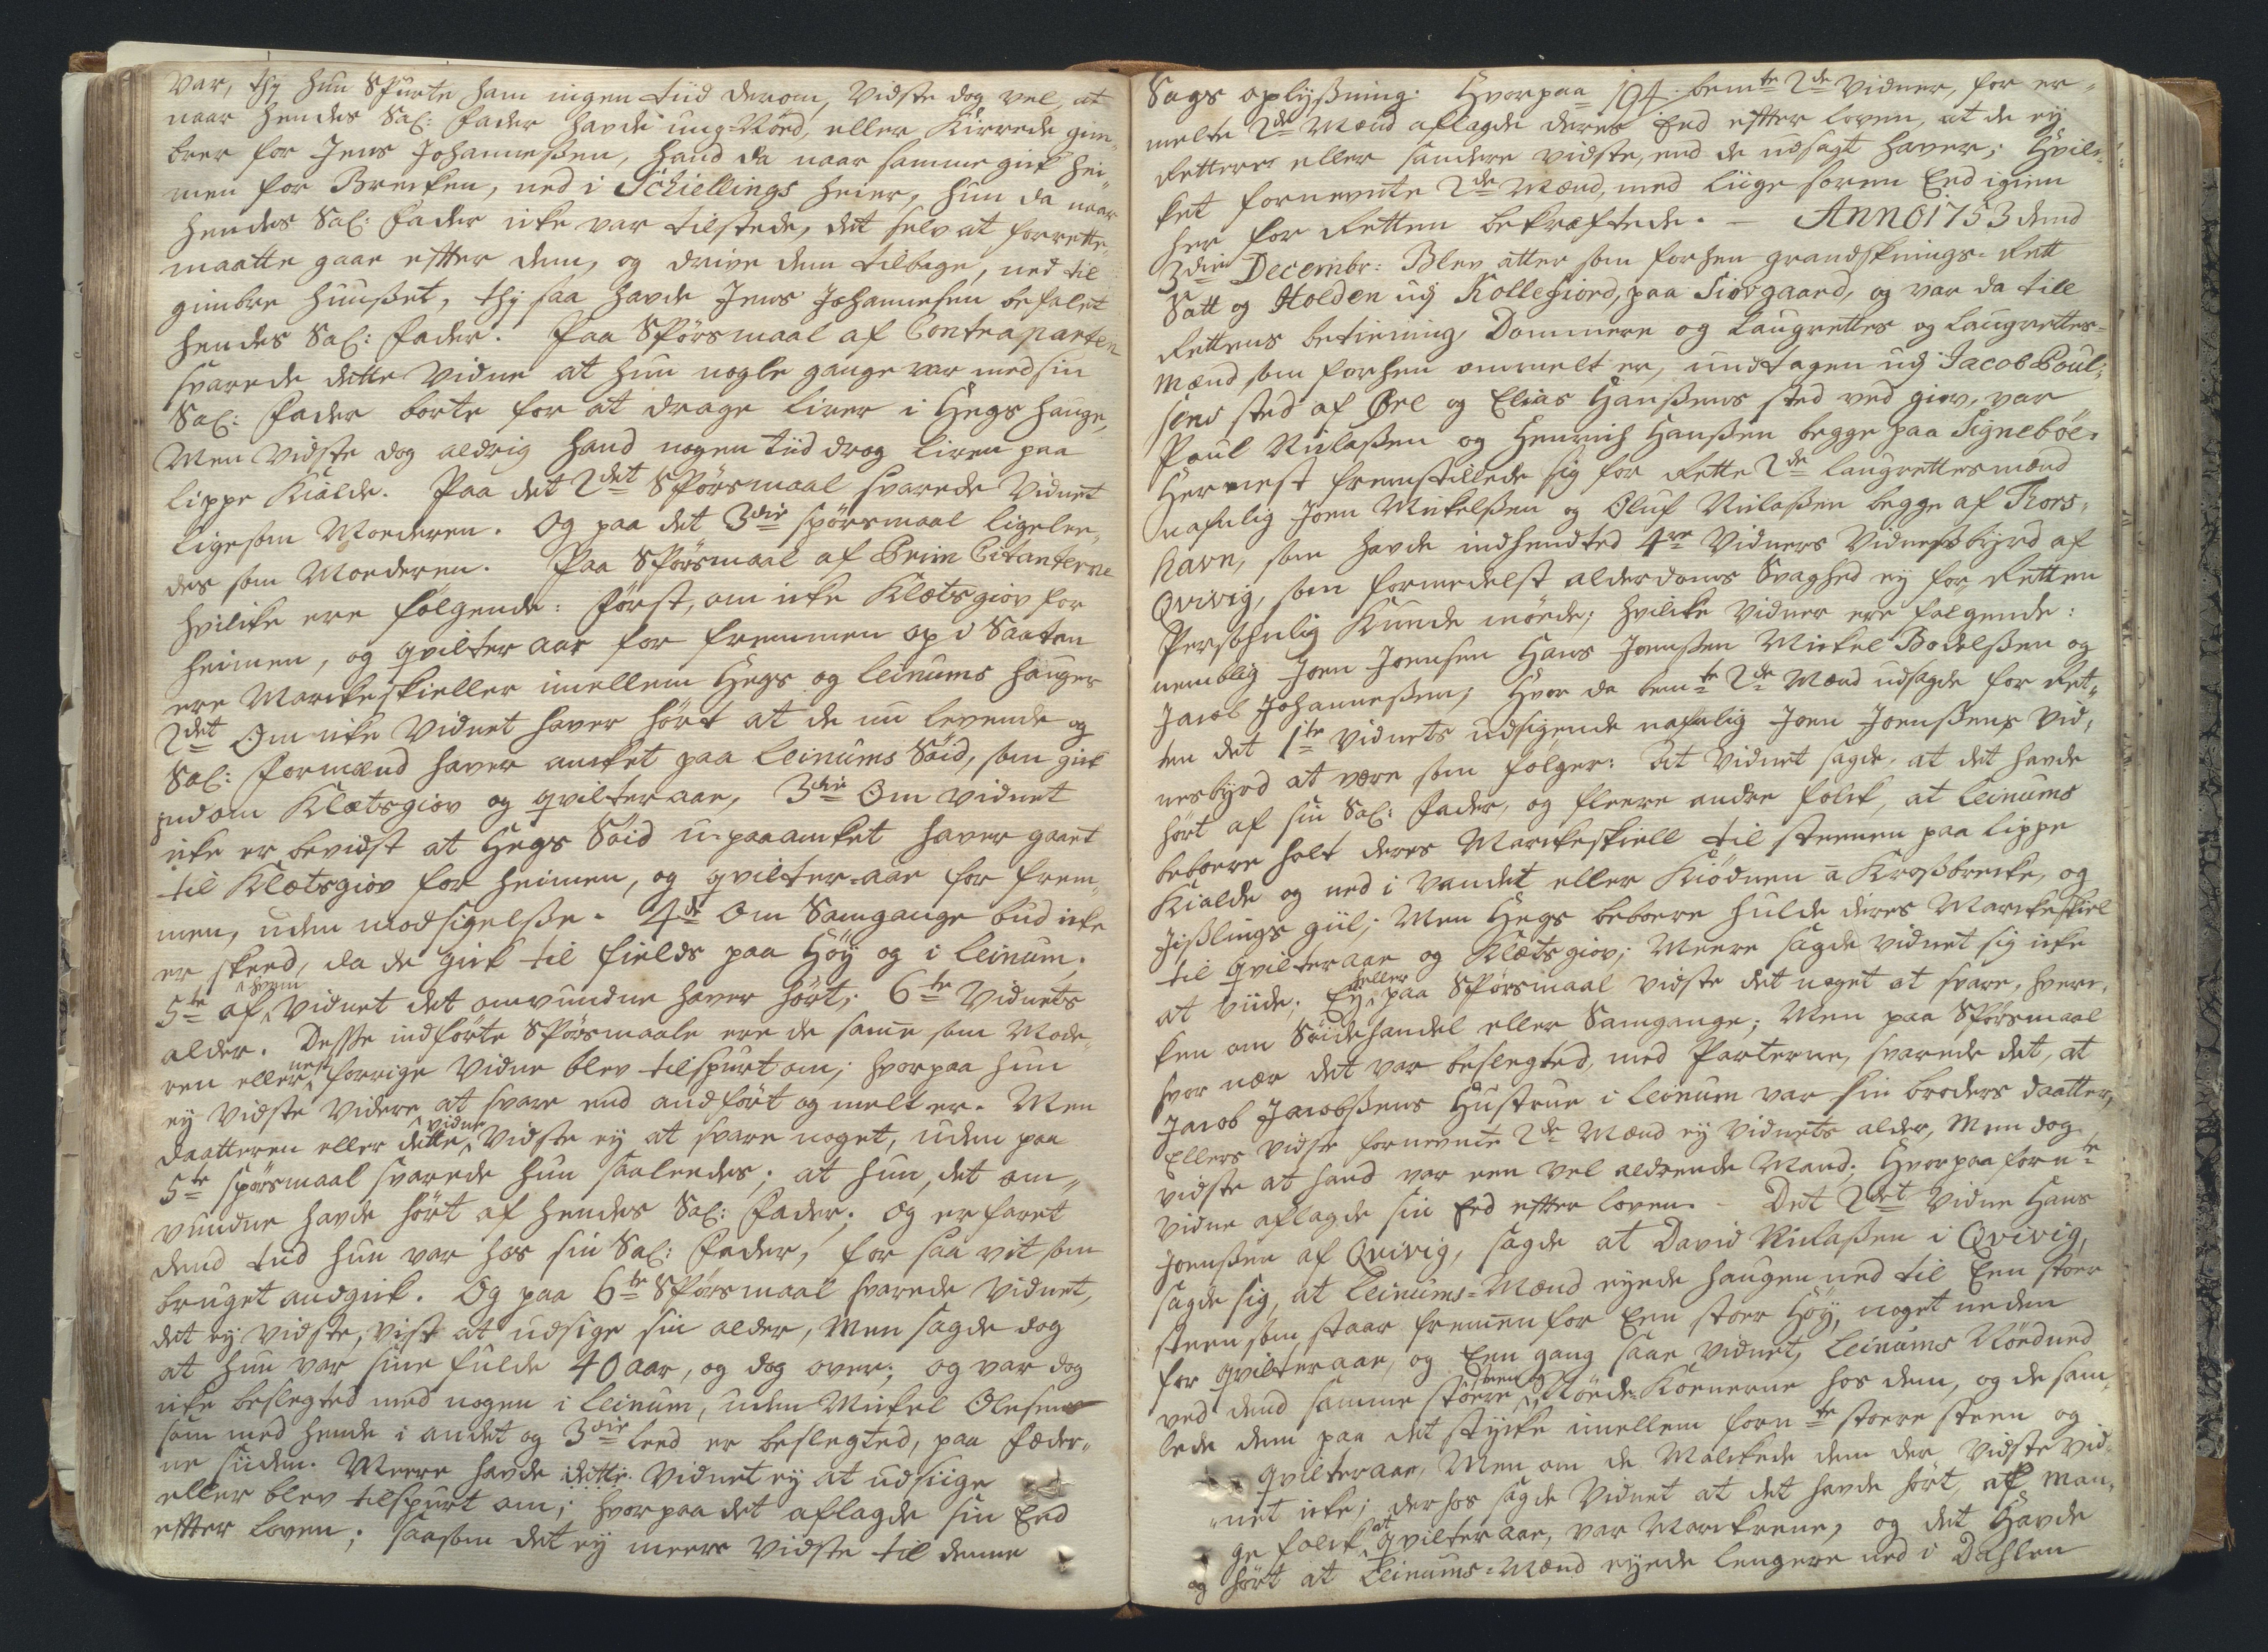 var, thy hun Spurte ham ingen tiid derom, Vidste dog vel, at
naar hendes Sal: Fader havde ung-Nöed, eller Kirrede gim-
brer for Jens Johannesßen, hand da naar samme gik hei-
men for Brecken, ned i Schiellings heier, hun da naar
hendes Sal: Fader icke var tilstede, det selv at forrette,
maatte gaae effter dem, og drive dem tilbage, ned til
gimbre huußet, thy saa havde Jens Johannesen befalet
hendes Sal: Fader. Paa Spörsmaal af Contraparten
svarede dette Vidne at hun nogle gange var med sin
Sal: Fader borte for at drage Lirer i Hegs hauge,
Men Vidste dog aldrig hand nogen tiid drog Liren paa
Lippe Kialde. Paa det 2det Spörsmaal svarede Vidnet
ligesom Moederen. Og paa det 3die spörsmaal ligelee-
des som Moederen. Paa Spörsmaal af Prim Citanterne
hvilcke ere fölgende: Först, om icke Klætsgiov for
heimen, og qvilteraae for fremmen op i Saaten
ere Marckeskieller imellem Hegs og Leinums hauger
2det Om icke Vidnet haver hört at de nu levende og
Sal: Formænd haver ancket paa Leinums Söid, som gik
ind om Klætsgiov og qvilteraae, 3die Om Vidnet
icke er bevidst at Hegs Söid u-paaancket haver gaaet
til Klætsgiov for heimen, og qvilter-aae for frem-
men, uden modsigelsße. 4de Om Samgange bud icke
er skeed, da de gik til fields paa Höy og i Leinum.
5te af hvem Vidnet det omvundne haver hört; 6te Vidnets
alder. Desße indförte Spörsmaale ere de samme som Mode-
ren eller nest forrige Vidne blev tilspurt om; hvorpaa hun
ey Vidste Videre at svare end andfört og melt er. Men
Daatteren eller dette vidne Vidste ey at svare noget, uden paa
5te spörsmaal svarede hun saaleedes; at hun, det om-
vundne havde hört af hendes Sal: Fader; og erfaret
dend tiid hun var hos sin Sal: Fader, for saa vit som
bruget andgik. Og paa 6te Spörsmaal svarede Vidnet,
det ey vidste, vist at udsige sin alder, Men sagde dog
at hun var sine fulde 40 aar, og dog over; og var dog
icke beslegted med nogen i Leinum, uden Mickel Olesen
som med hende i andet og 3die leed er beslegted, paa Fæder-
ne siiden. Meere havde dette Vidnet ey at udsiige
eller blev tilspurt om; hvorpaa det aflagde sin Eed
effter Loven; saasom det ey meere Vidste til denne
Sags oplysßning. Hvorpaa 194. bemte 2de Vidner, for er-
melte 2de Mænd aflagde deres Eed effter Loven, at de ey
Retttere eller sandere vidste, end de udsagt haver; Hvil-
ket fornevnte 2de Mænd, med liige soren Eed igien
her for Retten bekræftede. — ANNO 1753 dend
3die Decembr: Blev atter som forhen grandsknings-Rett
Satt og Holden udj Kollefiord, paa Siovgaard, og var da till
Rettens betiening Dommere og Laugrettes og Laugrettes-
Mænd som forhen ommelt er, undtagen udj Jacob Poul-
sens sted af Øre og Elias Hansßens sted ved giov, var
Poul Niclasßen og Henrich Hansßen begge paa Signeböe.
Hernest fremstillede sig for Rette 2de Laugrettesmænd
nafnlig Joen Mickelsßen og Oluf Niclasßen begge af Thors-
havn, som havde indhendted 4re Vidners Vidnesbyrd af
Qvivig, som formedelst alderdoms Svaghed ey for Retten
Persohnlig kunde möede; hvilcke Vidner ere fölgende:
nemblig Joen Joensen Hans Joensßen Mickel Bodelsßen og
Jacob Johannesßen; Hvor da bemte 2de Mænd udsagde for Ret-
ten det 1te Vidnets udsigende nafnlig Joen Joensßens Vid-
nesbyrd at være som fölger: At Vidnet sagde, at det havde
hört af sin Sal: Fader, og fleere andre folck, at Leinums
beboere holt deres Marckeskiell til steenen paa Lippe
Kialde og ned i Vandet eller Kiödnen a Kroßbrecke, og
Jisßlings giil; Men Hegs beboere hulde deres Marckeskiel
til qvilteraae og Klætsgiov; Meere sagde vidnet sig icke
at viide; Ey heller paa Spörsmaal vidste det noget at svare, hver-
cken om Söidehandel eller Samgange; Men paa Spörsmaal
hvor nær det var beslegted, med Parterne, svarede det, at
Jacob Jacobsßens Hustrue i Leinum var hin broders daatter,
Ellers vidste fornevnte 2de Mænd ey Vidnets alder, Men dog
vidste at hand var een vel aldrende Mand; Hvorpaa fornte
Vidne aflagde sin Eed effter Loven. - Det 2det Vidne Hans
Joensßen af Qvivig, sagde at David Niclasßen i Qvivig,
sagde sig, at Leinums-Mænd eyede haugen ned til Een stoer
steen som staar fremen for Een stoer Höy, noget neden
for qvilteraae, og Een gang saae vidnet, Leinums Nöed ned
ved dend samme stoere steen og Nöede-Konerne hos dem, og de sam-
lede dem paa det stycke imellem fornte stoere steen og
qvilteraae, Men om de Malckede dem der Vidste vid-
net icke; derhos sagde Vidnet at det havde hört, af man-
ge folck at qvilteraae, var Marckerne, og det Havde
og hört at Leinums-Mænd eyede lengere ned i Dahlen